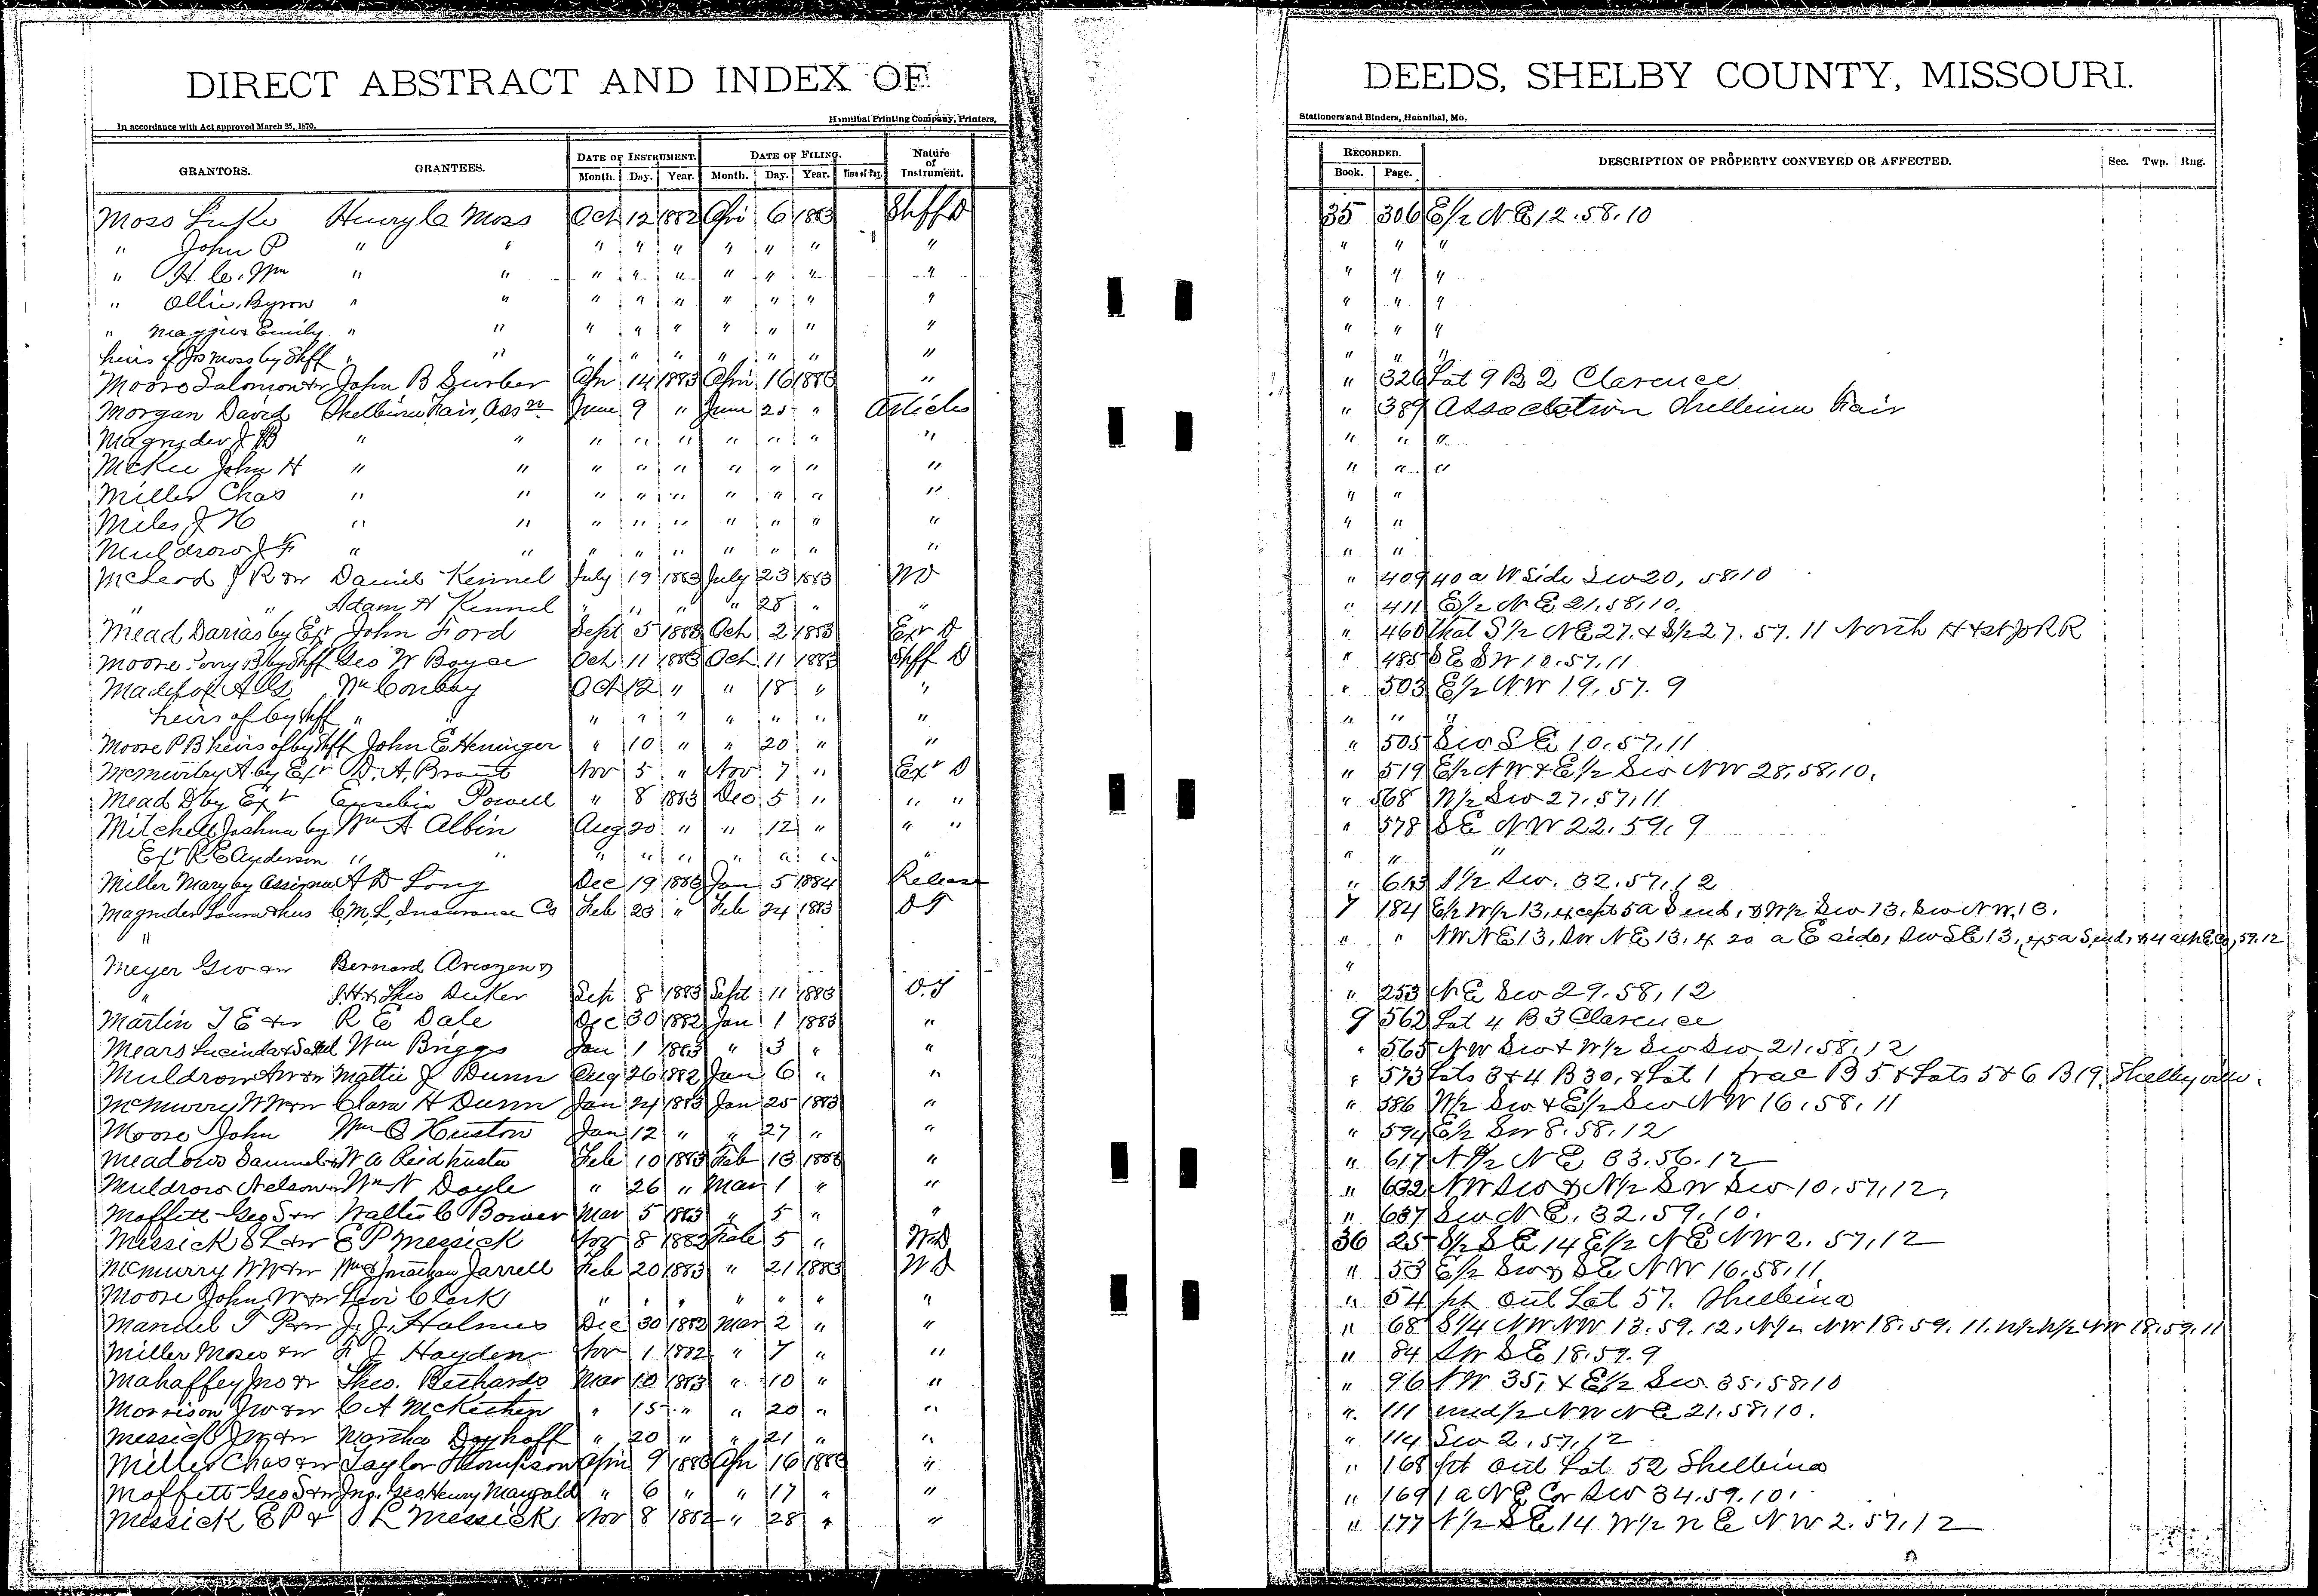 DIRECT ABSTRACT AND INDEX OF DEEDS, SHELBY COUNTY, MISSOURI.
In accordance with Act approved March 25, 1870. Hannibal Printing Company, Printers, Stationers and Binders, Hannibal, Mo.
GRANTORS. GRANTEES. DATE OF INSTRUMENT. Month. Day. Year. DATE OF FILING. Month. Day. Year. Time of Day. Nature of Instrument. RECORDED. Book. Page. DESCRIPTION OF PROPERTY CONVEYED OR AFFECTED. Sec. Twp. Rng.
Moss Luke Henry C Moss Oct 12 1882 Apr 6 1883 Shff D 35 306 E/2 NE 12.58.10
" John P " " " " " " " " " " " "
" H C. Wm " " " " " " " " " " " "
" Ollie, Byron " " " " " " " " " " " "
" Maggie & Emily " " " " " " " " " " " "
heirs of Jos Moss by Shff " " " " " " " " " " " "
Moore Solomon & w John B Surber Apr 14 1883 Apri 16 1883 " " 326 Lot 9 B 2 Clarence
Morgan David Shelbina Fair, Assn June 9 " June 25 " Articles " 389 Association Shelbina Fair
Magruder J B " " " " " " " " " " " "
McKee John H " " " " " " " " " " " "
Miller Chas " " " " " " " " " " "
Miles, J H " " " " " " " " " " "
Muldrow J F " " " " " " " " " " "
McLeod J R & w Daniel Kennel July 19 1883 July 23 1883 WD " 409 40 a W Side Sw 20, 58.10
" " Adam H Kennel " " " " 28 " " " 411 E/2 NE 21.58.10.
Mead Darias by Exr John Ford Sept 5 1883 Oct 2 1883 Exr D " 460 that S 1/2 NE 27. & S/2 27. 57. 11 North H & St Jo RR
Moore Perry B by Shff Geo W Boyce Oct 11 1883 Oct 11 1883 Shff D " 485 SE SW 10.57.11
Wm Conboy Oct 12 " " 18 " " " 503 E/2 NW 19.57.9
heirs of by Shff " " " " " " " " " " " "
Moore P B heirs of by Shff John E Heninger " 10 " " 20 " " " 505 Sw SE 10.57.11
by Exr D. A. Brant Nov 5 " Nov 7 " Exr D " 519 E/2 NW & E/2 Sw NW 28.58.10.
Mead D by Exr Eusebia Powell " 8 1883 Dec 5 " " " " 568 N/2 Sw 27.57.11
Mitchell Joshua by Wm A Albin Aug 20 " " 12 " " " " 578 SE NW 22.59.9
Exr R E Anderson " " " " " " " " " " " "
Miller Mary by Assignee A D Long Dec 19 1883 Jan 5 1884 Release " 643 S/2 Sw. 32.57.12
Magruder Laura & hus C. M. L. Insurance Co Feb 23 " Feb 24 1883 DT 7 184 E/2 W/2 13, except 5 a S end, & W/2 Sw 13, Sw NW. 13.
" " " NW NE 13, SW NE 13, & 20 a E side, Sw SE 13, 57.12
Meyer Geo & w Bernard "
" J. H. & Theo Duker Sept 8 1883 Sept 11 1883 D.T " 253 NE Sw 29.58.12
Martin T E & w R E Dale Dec 30 1882 Jan 1 1883 " 9 562 Lot 4 B 3 Clarence
Mears Lucinda & Saml Wm Briggs Jan 1 1883 " 3 " " " 565 NW Sw & W/2 Sw Sw 21.58.12
Muldrow & w Mattie J Dunn Aug 26 1882 Jan 6 " " " 573 Lots 3 & 4 B 30, & Lot 1 frac B 5 & Lots 5 & 6 B 19, Shelbyville.
McMurry W W & w Clara H Dunn Jan 24 1883 Jan 25 1883 " " 586 W/2 Sw & E/2 Sw NW 16.58.11
Moore John Wm O Huston Jan 12 " " 27 " " " 594 E/2 Sw 8.58.12
Meadows Samuel & w W A Reid trustee Feb 10 1883 Feb 13 1883 " " 617 N/2 NE 33.56.12
Muldrow Nelson & w Wm N Doyle " 26 " Mar 1 " " " 632 NW Sw & N/2 SW Sw 10.57.12.
Moffett Geo S & w Walter C Bower Mar 5 1883 " 5 " " " 637 Sw NE. 32.59.10.
Messick S L & w E P Messick Nov 8 1882 Feb 5 " WD 36 25 S/2 SE 14 E/2 NE NW 2. 57.12
McMurry W W & w Wm & Jonathan Jarrell Feb 20 1883 " 21 1883 WD " 53 E/2 Sw & SE NW 16.58.11
Moore John W & w Levi Clark " " " " " " " " 54 pt Out Lot 57. Shelbina
Manuel T P & w J. J. Holmes Dec 30 1882 Mar 2 " " " 68 S 1/4 NW NW 13.59.12, N/2 NW 18.59.11. W/2 N/2 NW 18.59.11
Miller Moses & w F J Hayden Nov 1 1882 " 7 " " " 84 SW SE 18.59.9
Mahaffey Jno & w Theo. Bethards Mar 10 1883 " 10 " " " 96 NW 35, & E/2 Sw 35.58.10
Morrison J W & w C A McKethen " 15 " " 20 " " " 111 und 1/2 NW NE 21.58.10.
Messick J W & w Martha Dayhoff " 20 " " 21 " " " 114 Sw 2.57.12
Miller Chas & w Taylor Thompson Apri 9 1883 Apr 16 1883 " " 168 pt out Lot 52 Shelbina
Moffett Geo S & w Jno. Geo Henry Mangold " 6 " " 17 " " " 169 1 a NE Cor Sw 34.59.10.
Messick E P & S L Messick Nov 8 1882 " 28 " " " 177 N/2 SE 14 W/2 NE NW 2.57.12